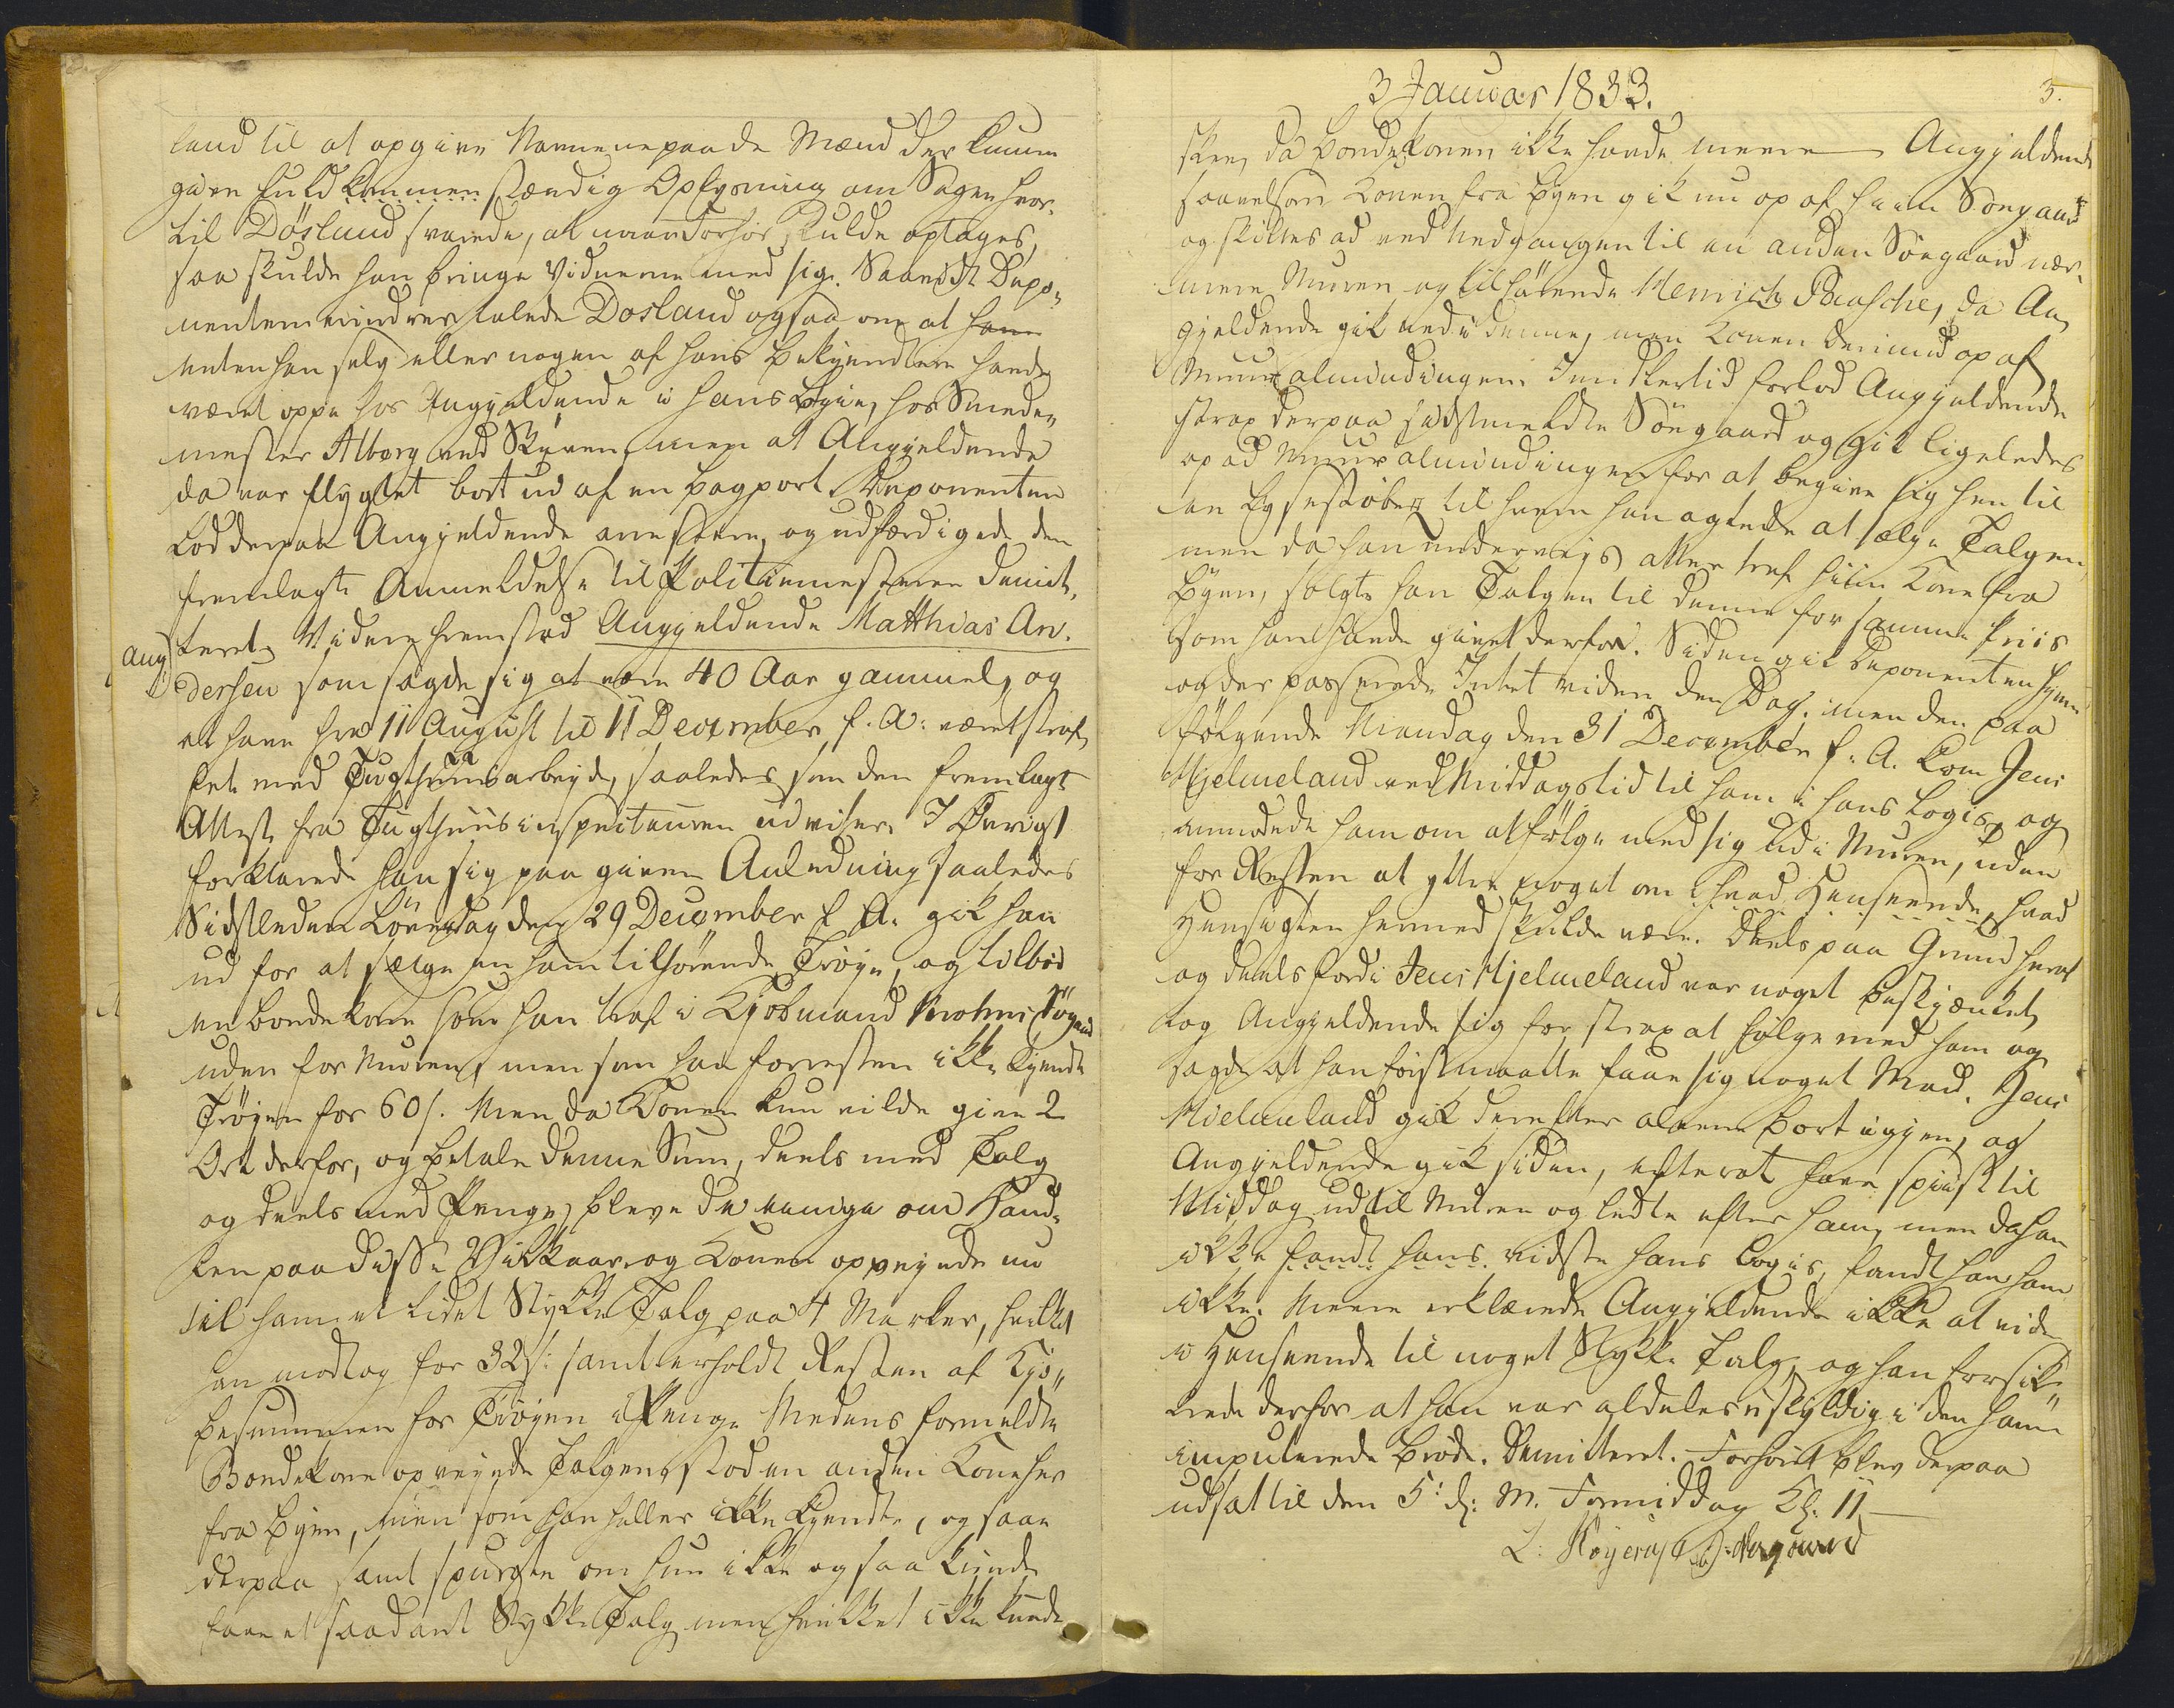 land til at opgive Navnene paa de Mænd der kunne
give fuldkommen stændig Oplysning om Sagen hvor-
til Dösland svarede, at naar Forhör skulde optages,
saa skulde han bringe Vidnerne med sig. Saavidt Depo-
nenten erindrer talede Dosland ogsaa om at han
enten han selv eller nogen af hans Bekjendtere havde
været oppe hos Angjeldende i hans Leie, hos Smede-
mester Alborg ved Skuren, men at Angjeldende
da var flygtet bort ud af en Bagport. Deponenten
lod derpaa Angjeldende arrestere, og udfærdigede den
fremlagte Anmeldelse til Politiemesteren. Dimit-
teret. Videre fremstod Angjeldende Matthias An-
Ang
dersen som sagde sig at være 40 Aar gammel, og
at have fra 11 August til 11 December f. A. været straf-
fet med Tugthuusarbeyde, saaledes som den fremlagte
Attest fra Tugthuusinspecteuren udviser. I Övrigt
forklarede han sig paa given Anledning saaledes
Sidstleden Löverdag den 29 December f. A. gik han
ud for at sælge en ham tilhörende Tröye, og tilbød
en Bondekone som han traf i Kjöbmand Krohns Söegaard
uden for Muren, men som han forresten ikke kjendte
Tröyen for 60 s. Men da Konen kun vilde give 2
Ort derfor, og betale denne Sum, deels med Talg
og deels med Penge, bleve de eenige om Hand-
len paa disse Vilkaar og Konen opveyede nu
til ham et lidet Stykke Talg paa 4 Marker, hvilket
han modtog for 32 s: samt erholdt Resten af Kjö-
besummen for Tröyen i Penge. Medens formeldte
Bondekone opveyede Talgen, stod en anden Kone her
fra Byen, men som han heller ikke kjendte, og saae
derpaa samt spurgte om hun ikke ogsaa kunde
faae et saadant Stykke Talg, men hvilket ikke kunde
3 Januar 1833.
3.
skee, da Bondekonen ikke havde mere. Angjeldende
saavelsom Konen fra Byen gik nu op af hiin Söegaard
og skiltes ad ved Nedgangen til en anden Söegaard nær-
mere Muren og tilhörende Henrich Paasche, da An-
gjeldende gik ned i denne, men Konen derimod op af
Muuralmindingen. Imidlertid forlod Angjeldende
strax derpaa sidstmeldte Söegaard og gik ligeledes
op ad Muuralmindingen for at begive sig hen til
en Lysestöber til hvem han agtede at sælge Talgen,
men da han underveys atter traf hiin Kone fra
Byen, solgte han Talgen til denne for samme Priis
som han havde givet derfor. Siden gik Deponenten hjem
og der passerede Intet videre den Dag. men den paa
fölgende Mandag den 31 December f. A. kom Jens
Hjelmeland ved Middagstid til ham i hans Logis, og
anmodede ham om at fölge med sig ud i Muren, uden
for Resten at yttre noget om i hvad Henseende, hvad
Hensigten hermed skulde være. Deels paa Grund heraf
og deels fordi Jens Hjelmeland var noget beskjænket,
tog Angjeldende sig for strax at fölge med ham og
sagde at han först maatte faae sig noget Mad. Jens
Hjelmeland gik derefter alene bort igjen, og
Angjeldende gik siden, efter at have spiist til
Middag ud til Muren og ledte efter ham, men da han
ikke fandt hans vidste hans Logis, fandt han ham
ikke. Mere erklærede Angjeldende ikke at vide
i Henseende til noget Stykke Talg, og han forsik-
krede derfor at han var aldeles uskyldig i den ham
imputerede Bröde. Demitteret. Forhöret blev derpaa
udsat til den 5: d: M. Formiddag Kl. 11.